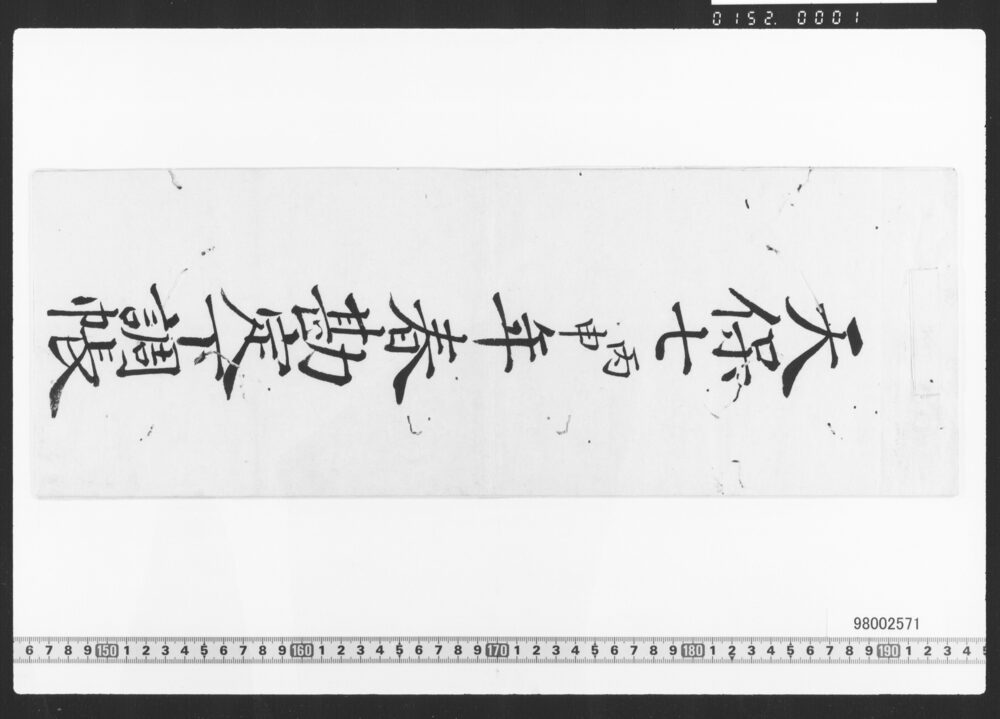 0152. 0001
天保七丙申年春勘定下調帳
98002571
6 7 8 9 150 1 2 3 4 5 6 7 8 9 160 1 2 3 4 5 6 7 8 9 170 1 2 3 4 5 6 7 8 9 180 1 2 3 4 5 6 7 8 9 190 1 2 3 4